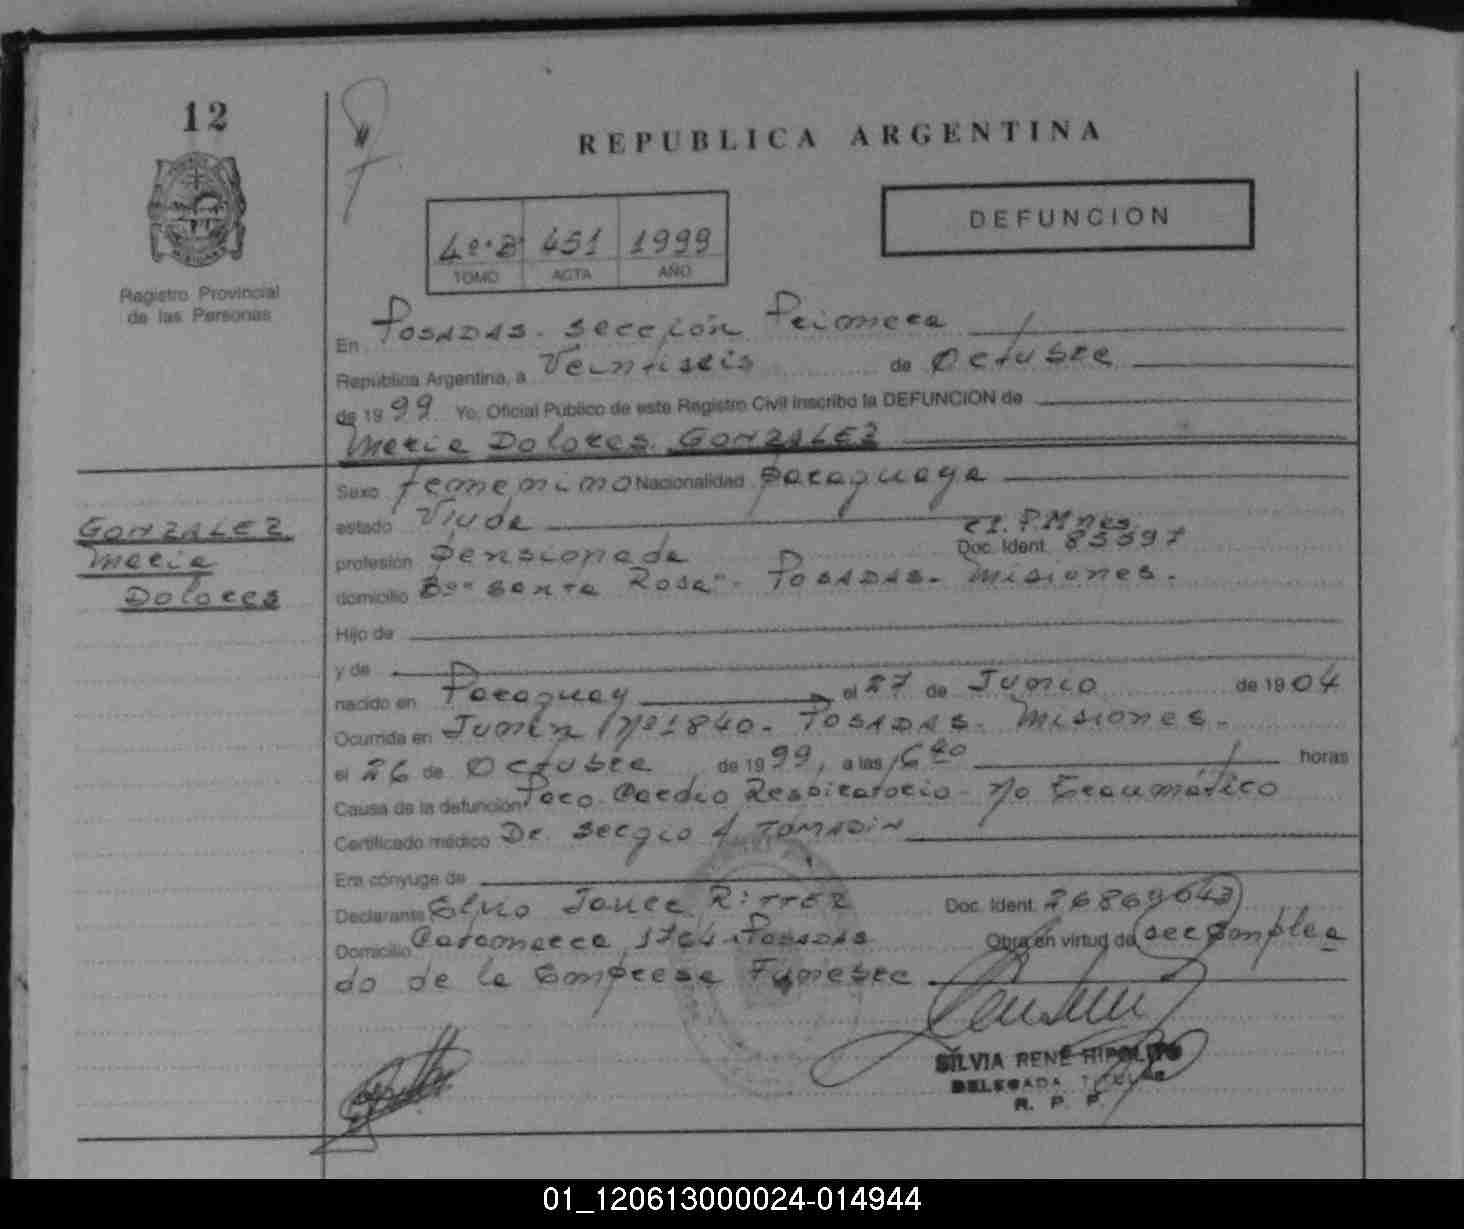 12
REPUBLICA ARGENTINA
DEFUNCION
4º·B 451 1999
TOMO ACTA AÑO
Registro Provincial
de las Personas
En POSADAS. Sección Primera
República Argentina, a Veintiseis de Octubre
de 1999. Yo, Oficial Público de este Registro Civil inscribo la DEFUNCION de
Maria Dolores GONZALEZ
GONZALEZ
Maria
Dolores
Sexo femenino Nacionalidad Paraguaya
estado Viuda
profesión Pensionada C.I. P.Mnes Doc. Ident. 83597
domicilio Bº "Santa Rosa" - POSADAS - Misiones.
Hijo de
y de
nacido en Paraguay el 27 de Junio de 1904
Ocurrida en Junín Nº 1840 - POSADAS - Misiones.
el 26 de Octubre de 1999, a las 6 40 horas
Causa de la defunción Paro Cardio Respiratorio - No traumático
Certificado médico Dr. Sergio A. TOMASIN
Era cónyuge de
Declarante Elvio RITTER Doc. Ident. 26869643
Domicilio Catamarca 1764 - POSADAS Obra en virtud de ser Emplea
do de la Empresa Funebre
SILVIA RENE HIPOLITO
DELEGADA TITULAR
R. P. P.
01_120613000024-014944